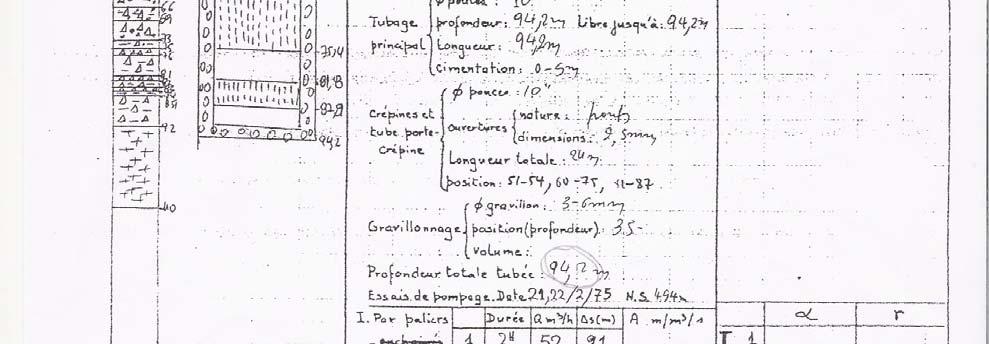 φ pouces : 10"
Tubage principal
profondeur: 94,2m Libre jusqu'à: 94,2m
Longueur: 94,2m
cimentation: 0-5m
Crépines et tube porte-crépine
φ pouces : 10"
ouvertures
nature:
dimensions: 2,5mm
Longueur totale: 24m
position: 51-54, 60-75, -87
Gravillonnage
φ gravillon: 3-6mm
position (profondeur): 35-
volume:
Profondeur totale tubée: 94,2m
Essais de pompage. Date 21,22/2/75 N.S
I. Par paliers
Durée Q m³/h Δs(m) A m/m³/s
1 2H 52 91
α r
I 1
66
69
92
110
75,4
81,8
94,2